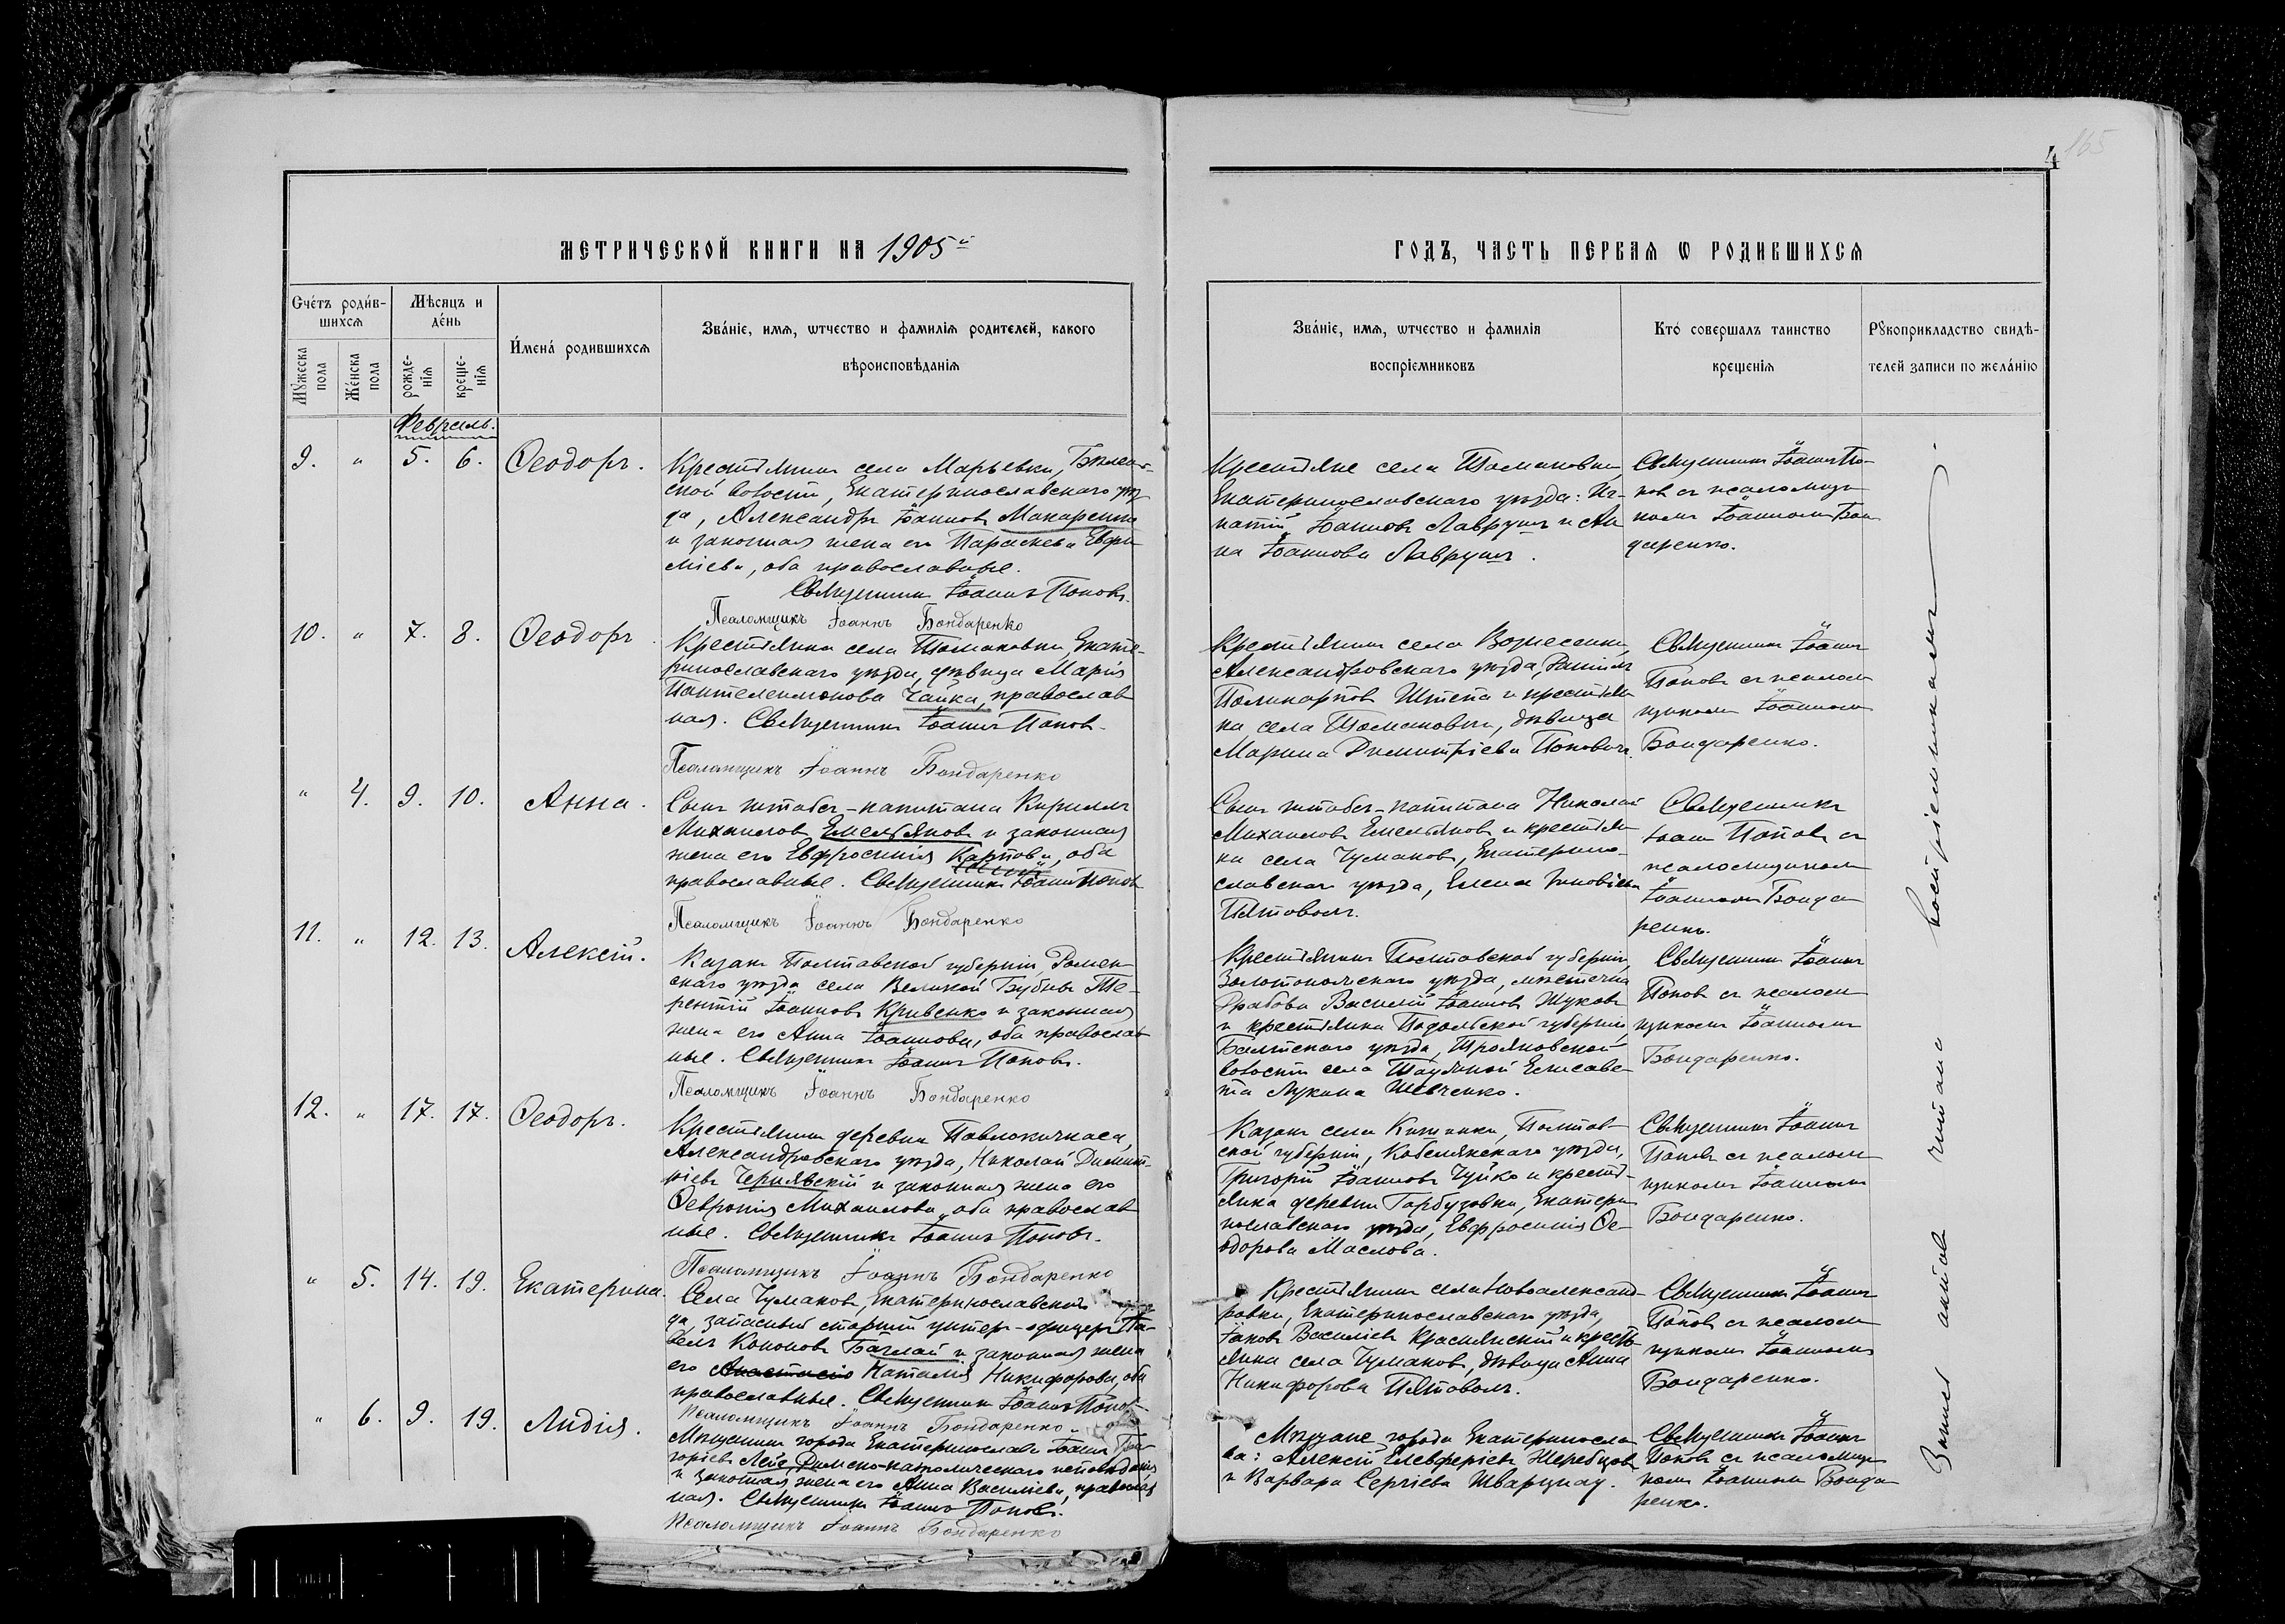 165
4
МЕТРИЧЕСКОЙ КНИГИ НА 1905й
ГОДЪ, ЧАСТЬ ПЕРВАЯ Ѡ РОДИВШИХСЯ
Счетъ родив-
шихся
Мѣсяцъ и
день
Имена родившихся
Званіе, имя, ѡтчество и фамилія родителей, какого
вѣроисповѣданія
Мужеска
пола
Женска
пола
рожде-
нія
креще-
нія
Званіе, имя, ѡтчество и фамилія
воспріемниковъ
Кто совершалъ таинство
крещенія
Рукоприкладство свидѣ-
телей записи по желанію
Февраль.
9. " 5. 6. Ѳеодоръ.
Крестьянинъ села Марьевки,
ской волости, Екатеринославскаго уѣз
да, Александръ Іоанновъ Макаренко
и законная жена его Параскева Евфи
міева, оба православные.
Священникъ Іоаннъ Поповъ.
Псаломщикъ Іоаннъ Бондаренко
Крестьяне села Томаковки,
Екатеринославскаго уѣзда: Иг-
натій Іоанновъ Лаврушъ и Ан
на Іоаннова Лаврушъ.
Священникъ Іоаннъ По-
повъ съ псаломщи
комъ Іоанномъ Бон
даренко.
10. " 7. 8. Ѳеодоръ.
Крестьянка села Томаковки, Екате-
ринославскаго уѣзда, дѣвица Марія
Пантелеимонова Чайка, православ
ная. Священникъ Іоаннъ Поповъ.
Псаломщикъ Іоаннъ Бондаренко
Крестьянинъ села Вознесенки,
Александровскаго уѣзда,
Поликарповъ Штепа и крестьян
ка села Томаковки, дѣвица
Марина Димитріева Поповичъ.
Священникъ Іоаннъ
Поповъ съ псалом
щикомъ Іоанномъ
Бондаренко.
" 4. 9. 10. Анна.
Сынъ штабсъ-капитана Кириллъ
Михаиловъ Емельяновъ и законная
жена его Евфросинія Карпова, оба
православные. Священникъ Іоаннъ Поповъ
Псаломщикъ Іоаннъ Бондаренко
Сынъ штабсъ-капитана Николай
Михаиловъ Емельяновъ и крестьян
ка села Чумаковъ, Екатерино-
славскаго уѣзда, Елена Зиновіева
Пятоволъ.
Священникъ
Іоаннъ Поповъ съ
псаломщикомъ
Іоанномъ Бонда
ренко.
11. " 12. 13. Алексій.
Казакъ Полтавской губерніи, Ромен
скаго уѣзда села Великой Бубны Те-
рентій Іоанновъ Кривенко и законная
жена его Анна Іоаннова, оба православ
ные. Священникъ Іоаннъ Поповъ.
Псаломщикъ Іоаннъ Бондаренко
Крестьянинъ Полтавской губерніи,
Золотоношскаго уѣзда, мѣстечка
Драбова Василій Іоанновъ Жуковъ
и крестьянка Подольской губерніи,
Балтскаго уѣзда, Трояновской
волости села Таужной Елисаве-
та Лукина Шевченко.
Священникъ Іоаннъ
Поповъ съ псалом
щикомъ Іоанномъ
Бондаренко.
12. " 17. 17. Ѳеодоръ.
Крестьянинъ деревни Павлокичкаса,
Александровскаго уѣзда, Николай Димит-
ріевъ Чернявскій и законная жена его
Ѳевронія Михаилова, оба православ
ные. Священникъ Іоаннъ Поповъ.
Псаломщикъ Іоаннъ Бондаренко
Казакъ села Кишенки, Полтав
ской губерніи, Кобелякскаго уѣзда,
Григорій Іоанновъ Чуйко и кресть-
янка деревни Гарбузовки, Екатери
нославскаго уѣзда, Евфросинія Ѳе-
одорова Маслова.
Священникъ Іоаннъ
Поповъ съ псалом
щикомъ Іоанномъ
Бондаренко.
" 5. 14. 19. Екатерина.
Села Чумаковъ, Екатеринославскаго
да, запасный старшій унтеръ-офицеръ Па-
велъ Кононовъ Баглай и законная жена
его Анастасія Наталія Никифорова, оба
православные. Священникъ Іоаннъ Поповъ
Псаломщикъ Іоаннъ Бондаренко
Крестьянинъ села Новоалександ-
ровки, Екатеринославскаго уѣзда,
Іаковъ Василіевъ Краснянскій и кресть
янка села Чумаковъ, дѣвица Анна
Никифорова Пятоволъ.
Священникъ Іоаннъ
Поповъ съ псалом
щикомъ Іоанномъ
Бондаренко.
" 6. 9. 19. Лидія.
Мѣщанинъ города Екатеринослава Іоаннъ Гри
горіевъ Римско-католическаго исповѣданія
и законная жена его Анна Василіева, православ
ная. Священникъ Іоаннъ Поповъ.
Псаломщикъ Іоаннъ Бондаренко
Мѣщане города Екатериносла
ва: Алексій Елевферіевъ Жеребцовъ
и Варвара Сергіева Шварцнау.
Священникъ Іоаннъ
Поповъ съ псаломщи
комъ Іоанномъ Бонда
ренко.
Запись актовъ читана воспріемникамъ.